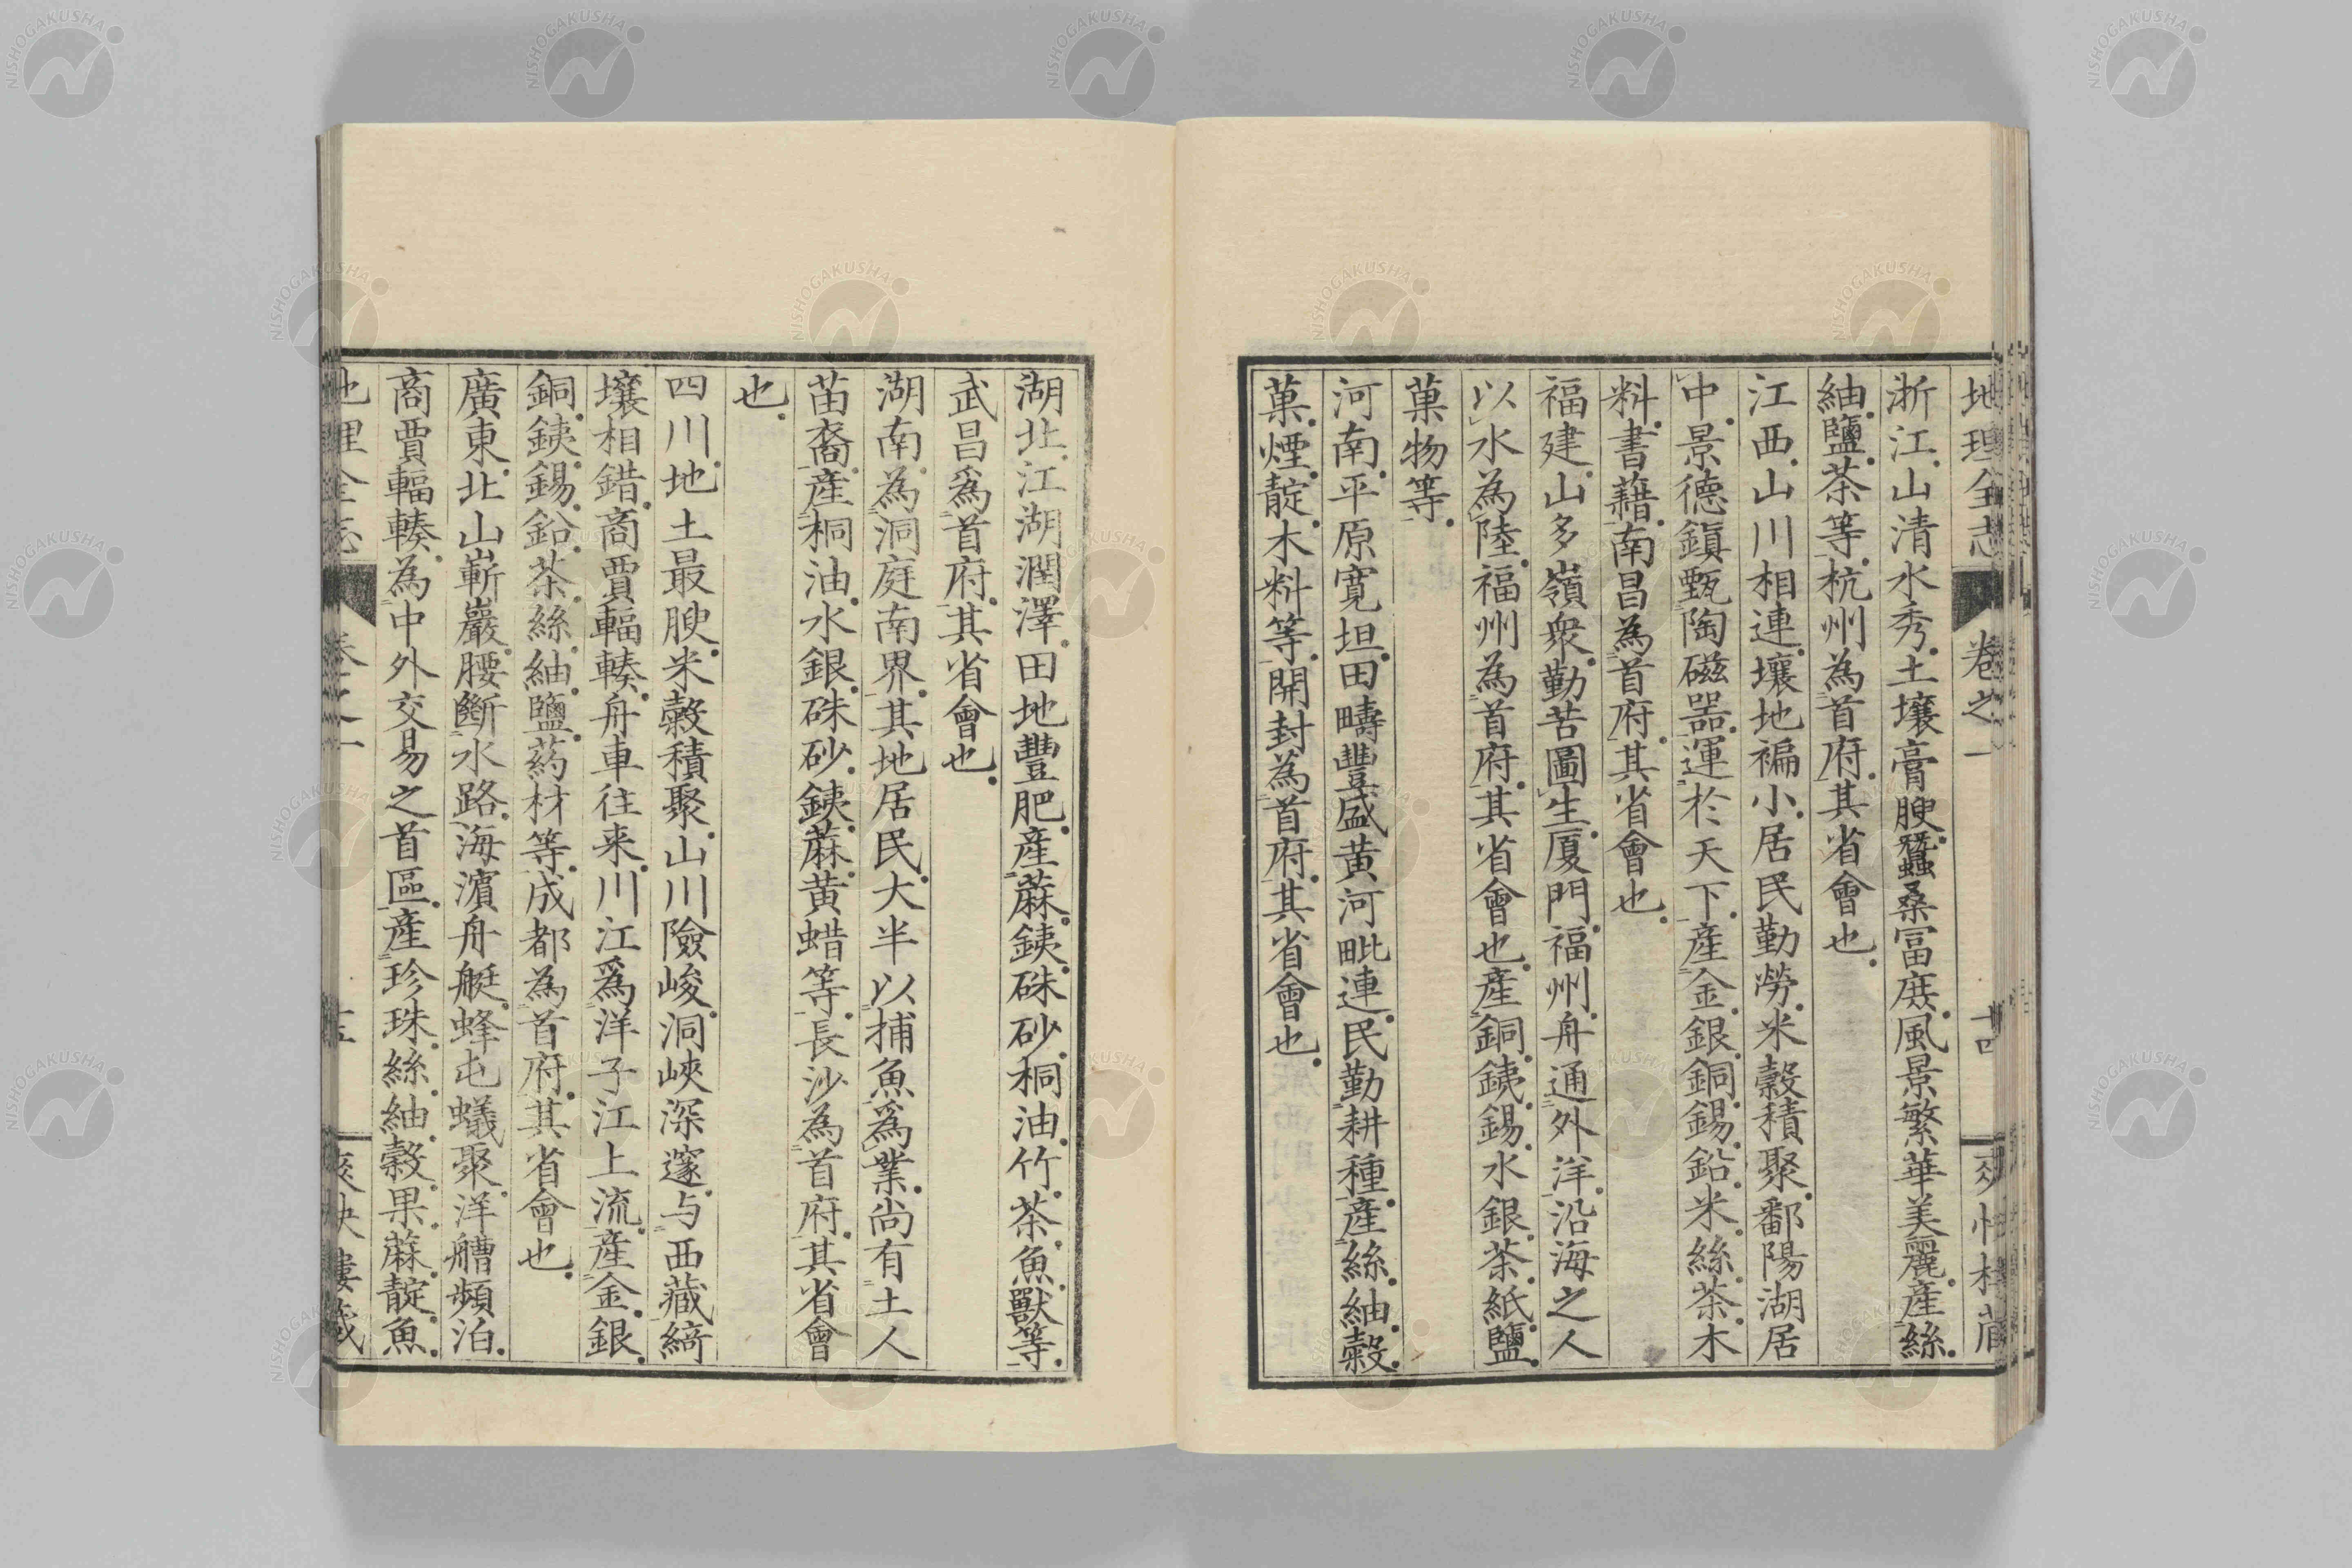 地理全志 卷之一 十四 爽快樓藏
浙江．山清水秀．土壤膏腴．蠶桑富庶．風景繁華美麗．產絲．
紬．鹽．茶等．杭州為首府．其省會也．
江西．山川相連．壤地褊小．居民勤勞．米穀積聚．鄱陽湖居
中．景德鎮甄陶磁器．運於天下．產金．銀．銅．錫．鉛．米．絲．茶．木
料．書藉．南昌為首府．其省會也．
福建．山多嶺衆．勤苦圖生．厦門．福州．舟通外洋．沿海之人
以水為陸．福州為首府．其省會也．產銅．銕．錫．水銀．茶．紙．鹽．
菓物等．
河南．平原寬坦．田疇豐盛．黄河毗連．民勤耕種．產絲．紬．穀．
菓．煙．靛．木料等．開封為首府．其省會也．
湖北．江湖潤澤．田地豐肥．產蔴．銕．硃砂．桐油．竹．茶．魚．獸等．
武昌爲首府．其省會也．
湖南．為洞庭南界．其地居民．大半以捕魚爲業．尚有土人
苗裔．產桐油．水銀．硃砂．銕．蔴．黄蜡等．長沙為首府．其省會
也．
四川．地土最腴．米穀積聚．山川險峻．洞峽深邃．与西藏綺
壤相錯．商賈輻輳．舟車往来．川江爲洋子江上流．產金．銀．
銅．銕．錫．鉛．茶．絲．紬．鹽．葯材等．成都為首府．其省會也．
廣東．北山嶄巖．腰斷水路．海濵舟艇．蜂屯蟻聚．洋艚頻泊．
商賈輻輳．為中外交易之首區．產珍珠．絲．紬．穀．果．蔴．靛．魚．
地理全志 卷之一 十五 爽快樓藏
NISHOGAKUSHA